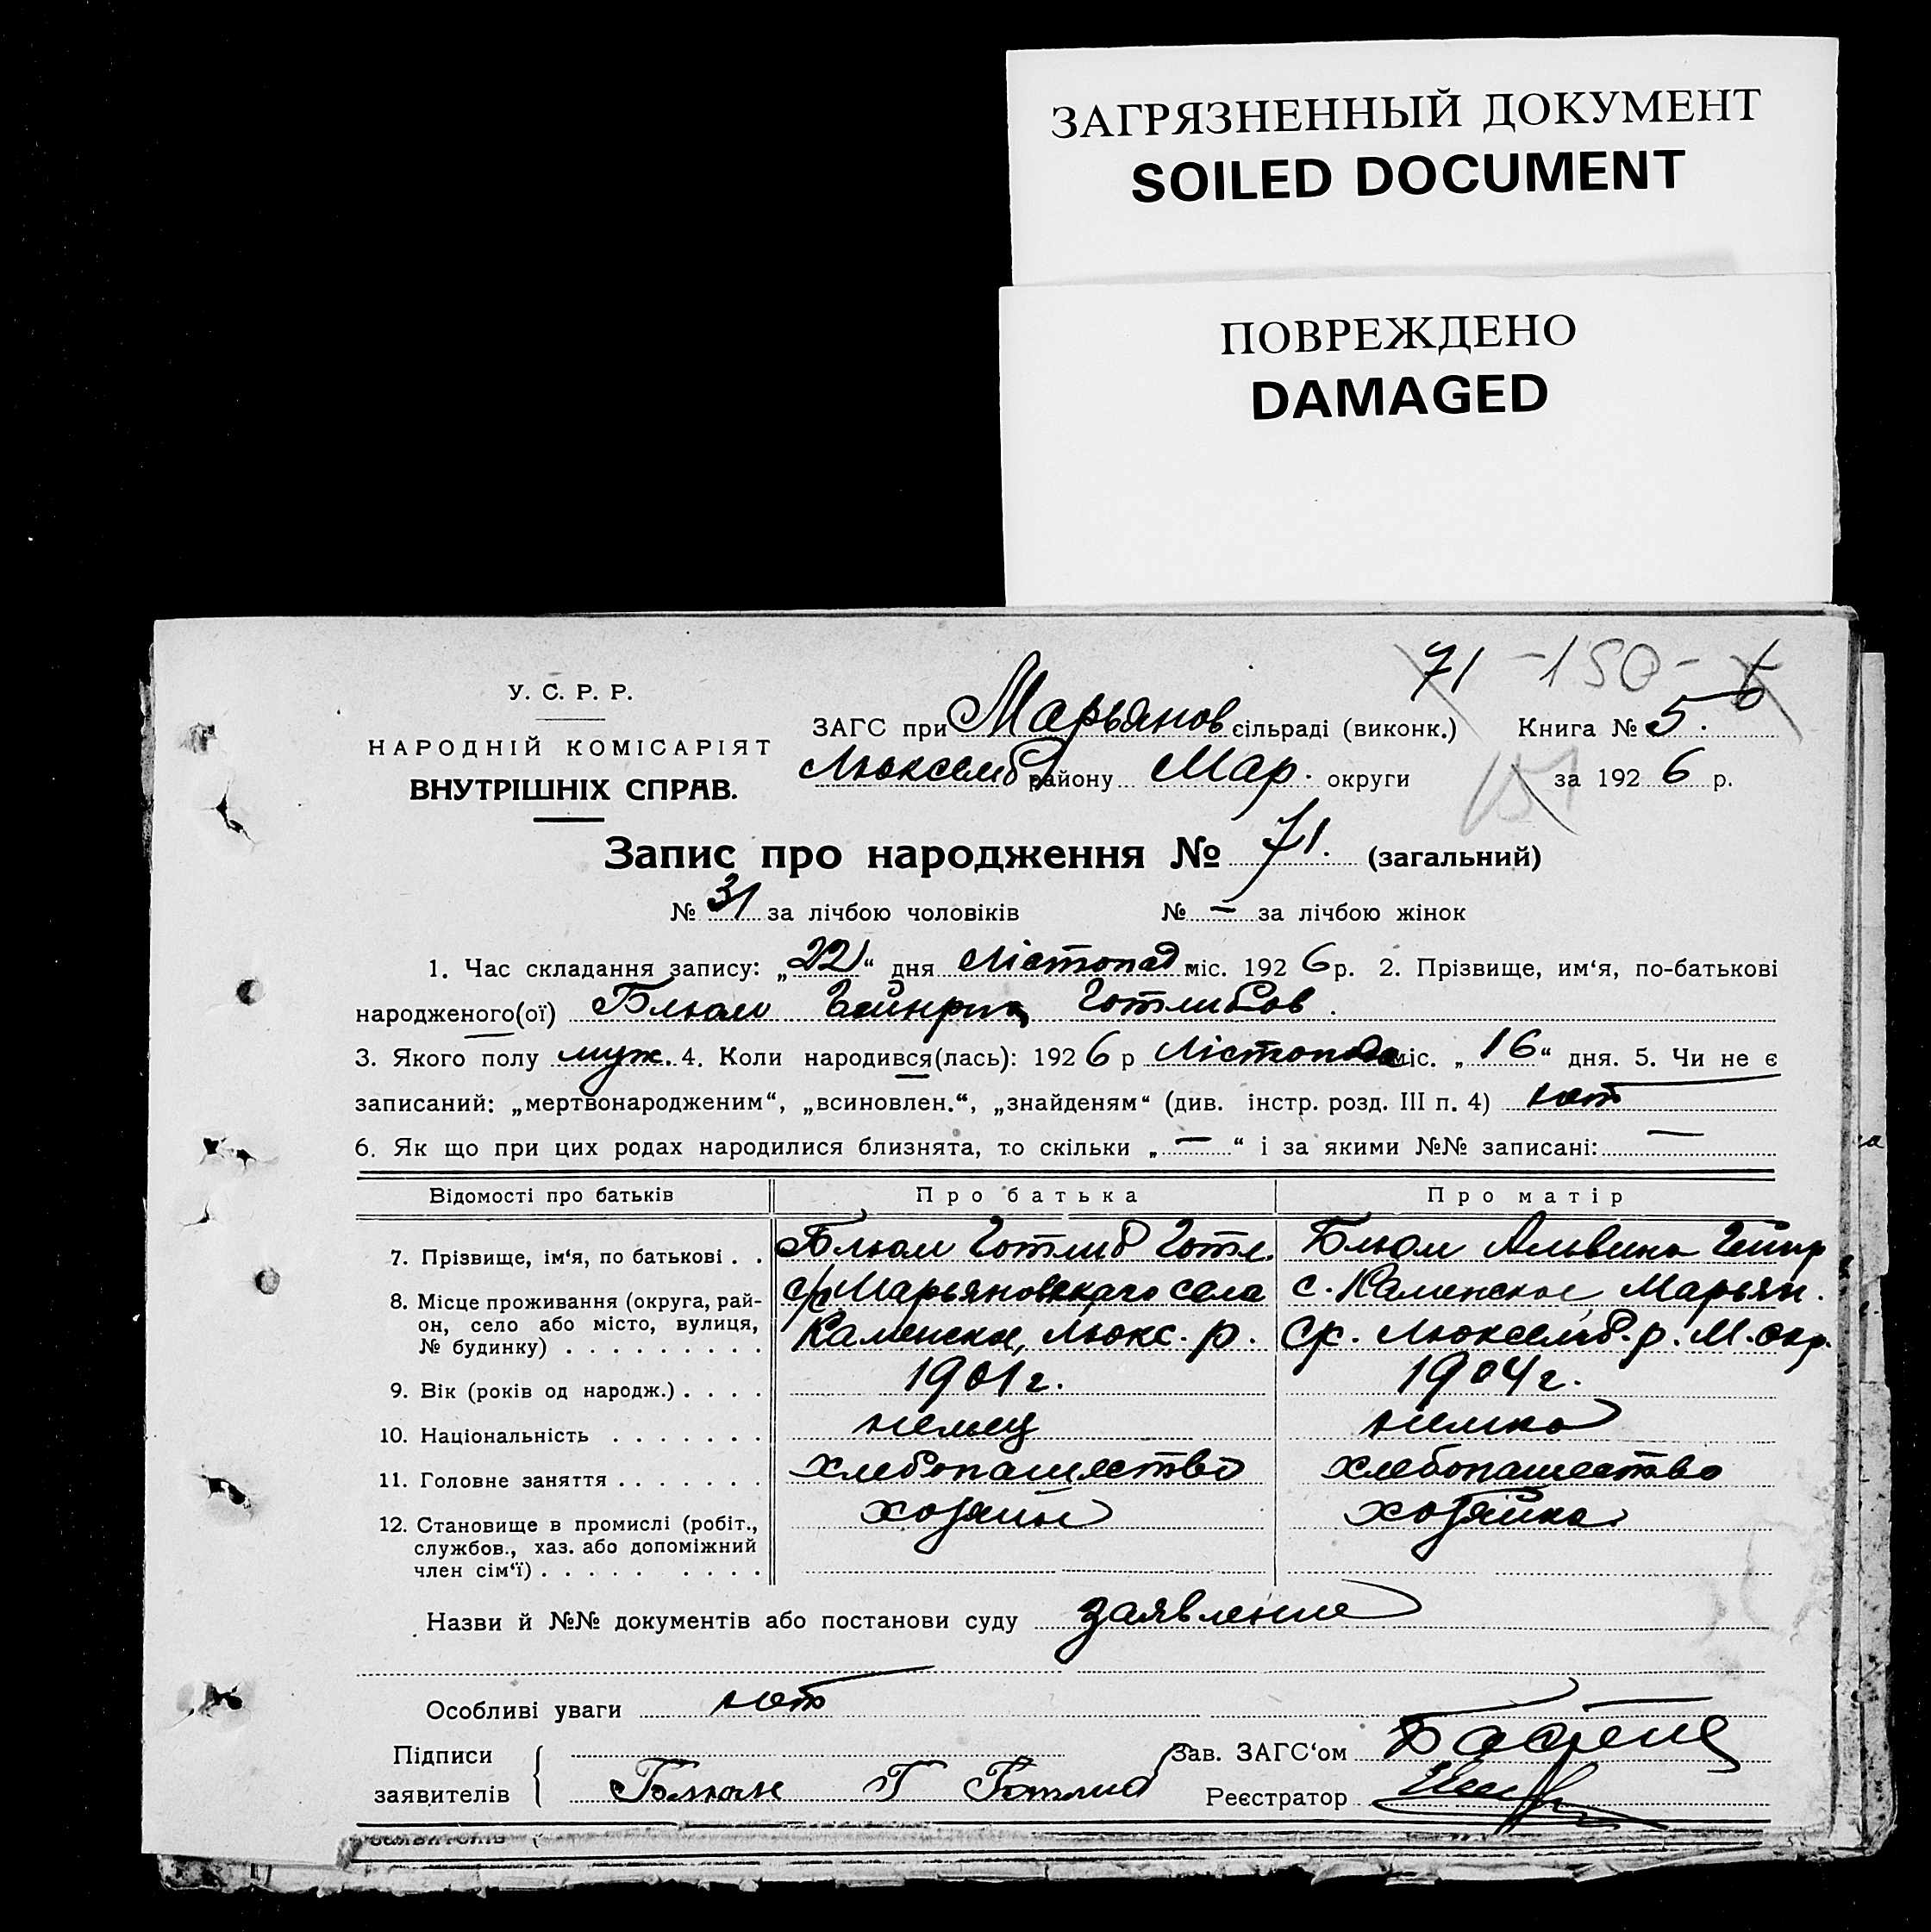 ЗАГРЯЗНЕННЫЙ ДОКУМЕНТ
SOILED DOCUMENT
ПОВРЕЖДЕНО
DAMAGED
71 -150-
У. С. Р. Р.
НАРОДНІЙ КОМІСАРІЯТ
ВНУТРІШНІХ СПРАВ.
ЗАГС при Марьянов сільраді (виконк.) Книга № 5.
Люксемб району Мар. округи за 1926 р.
151
Запис про народження № 71. (загальний)
№ 31 за лічбою чоловіків № — за лічбою жінок
1. Час складання запису: „22“ дня Лістопад міс. 1926 р. 2. Прізвище, им‘я, по-батькові
народженого(ої) Блюм Гейнрих Готлибов.
3. Якого полу муж. 4. Коли народився(лась): 1926 р Лістопада міс. „16“ дня. 5. Чи не є
записаний: „мертвонародженим“, „всиновлен.“, „знайденям“ (див. інстр. розд. III п. 4) нет
6. Як що при цих родах народилися близнята, то скільки „—“ і за якими №№ записані: —
Відомості про батьків Про батька Про матір
7. Прізвище, ім‘я, по батькові . . Блюм Готлиб Готл. Блюм Альвина Гейнр
8. Місце проживання (округа, рай-
он, село або місто, вулиця,
№ будинку) . . . . . . . . .
с/р Марьяновскаго села
Каменское, Люкс. р.
с. Каменское Марьян.
Ср. Люксемб. р. М. окр.
9. Вік (років од народж.) . . . . 1901 г. 1904 г.
10. Національність . . . . . . . немец немка
11. Головне заняття . . . . . . хлебопашество хлебопашество
12. Становище в промислі (робіт.,
службов., хаз. або допоміжний
член сім‘ї) . . . . . . . . .
хозяин хозяйка
Назви й №№ документів або постанови суду заявление
Особливі уваги нет
Підписи
заявителів
Блюм Г Готлиб
Зав. ЗАГС‘ом
Реєстратор
заявителів